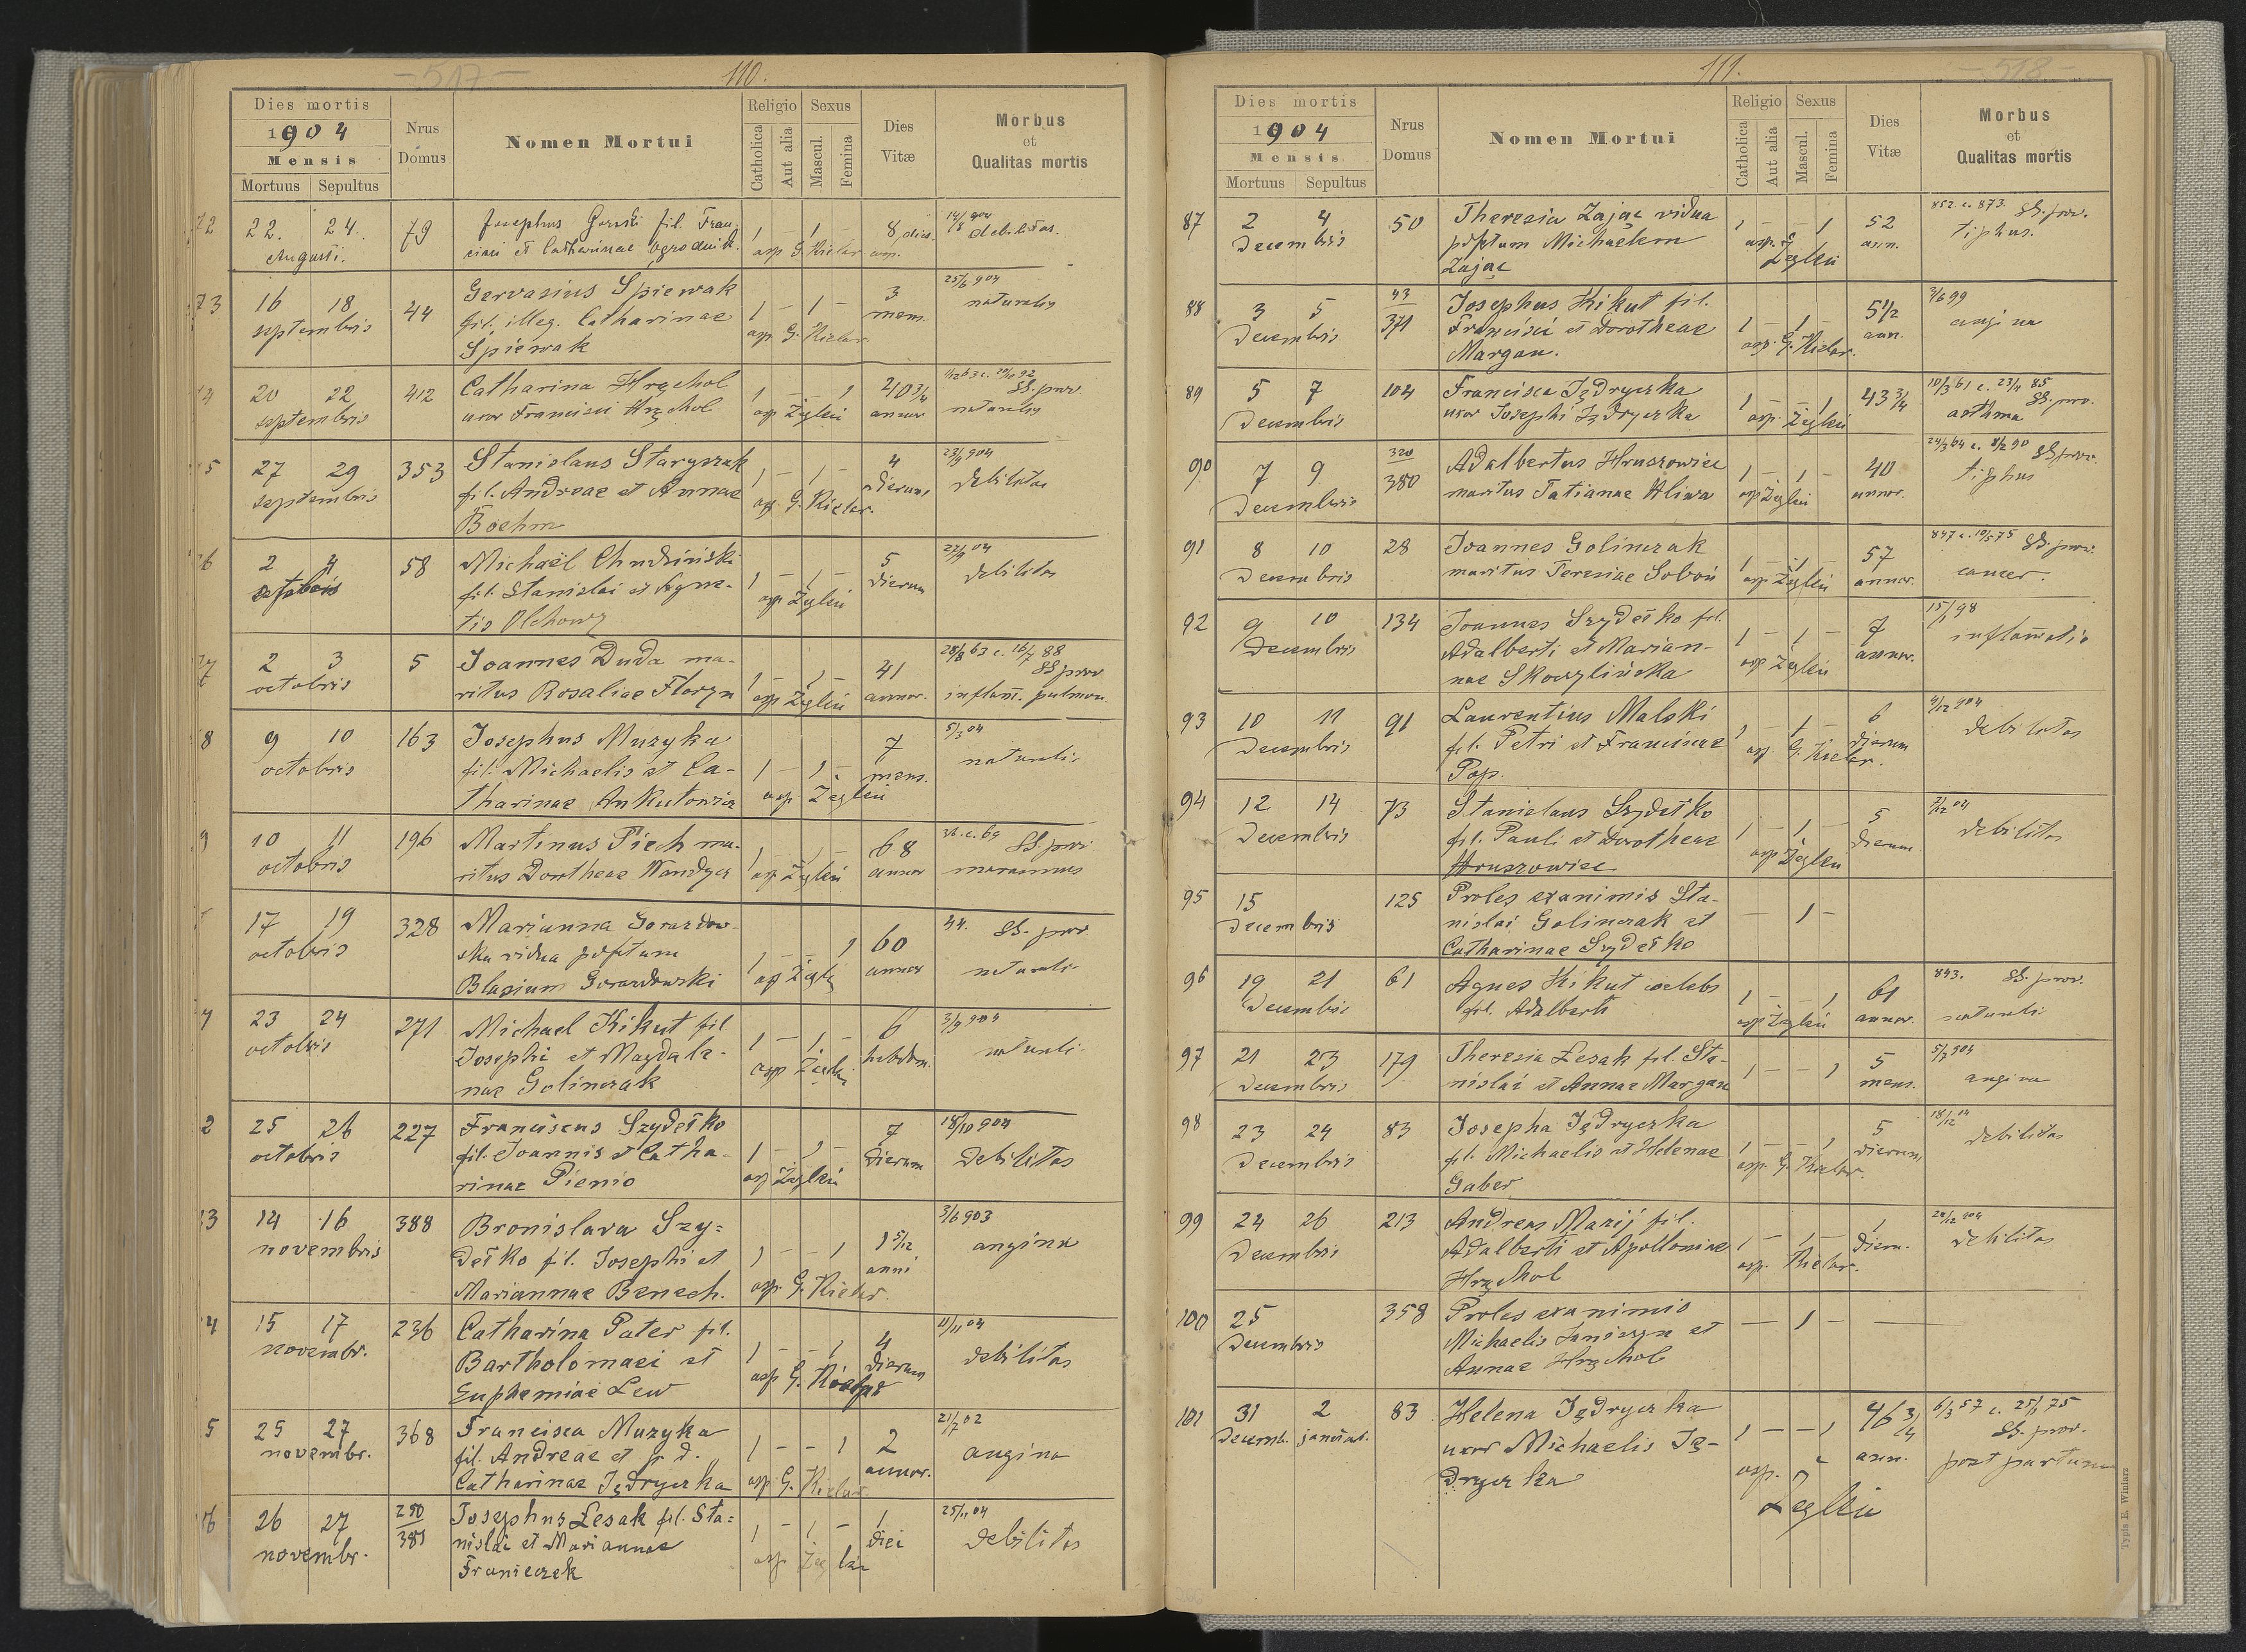 - 517 -
110.
Dies mortis
1904
Mensis
Mortuus Sepultus
Nrus Domus
Nomen Mortui
Religio
Catholica
Aut alia
Sexus
Mascul.
Femina
Dies Vitæ
Morbus
et
Qualitas mortis
72 22. 24. Augusti. 79
Josephus Gorski fil. Fran-
cisci et Catharinae Ogrodnik.
1 - 1 asp G. Kielar
8 dies
14/8 904 debilitas.
73 16 18 septembris 44
Gervasius Śpiewak
fil. illeg. Catharinae
Śpiewak
1 - 1 - asp. G. Kielar.
3 mens.
naturalis
20 22 septembris 412
Catharina Hręchol
uxor Francisci Hręchol
1 - - 1 asp Żegleń
40 3/4 annor
SS. prov.
naturalis
27 29 septembris 353
Stanislaus Staryszak
fil. Andreae et Annae
Boehm
1 - 1 - asp. G. Kielar.
4 dierum
23/9 904
debilitas
2 4 octobris 58
Michaël Chudziński
fil. Stanislai et Agne-
tis Olchowy
1 - 1 - asp Żegleń
5 dierum
27/9 04
debilitas
2 3 octobris 5
Joannes Duda ma-
ritus Rosaliae Floryn
1 - 1 - asp Żegleń
41 annor.
28/8 63 c. 16/7 88
SS prov
inflam. pulmon.
8 9 10 octobris 163
Josephus Muzyka
fil. Michaelis et Ca-
tharinae Ankutowicz
1 - 1 - asp. Żegleń
7 mens.
5/3 04
naturali-
9 10 11 octobris 196
Martinus Piech ma-
ritus Dorotheae Wandycz
1 - 1 - asp Żegleń
68 annor
36. c. 69 SS. prov
marasmus
17 19 octobris 328
Marianna Gorazdow-
ska vidua p. defctum
Blasium Gorazdowski
1 - - 1 asp Żegleń
60 annor
44. SS. prov.
naturali-
23 24 octobris 271
Michael Kikut fil.
Josephi et Magdale-
nae Golinczak
1 - 1 - asp Żegleń
6 hebdom.
3/9 904
naturali-
2 25 26 octobris 227
Franciscus Szydełko
fil. Joannis et Catha-
rinae Pienio
1 - 1 - asp Żegleń
7 dierum
18/10 904
debilitas
13 14 16 novembris 388
Bronislava Szy=
dełko fil. Josephi et
Mariannae Benech.
1 - - 1 asp. G. Kielar.
1 5/12 anni
3/6 903
angina
4 15 17 novembr. 236
Catharina Pater fil.
Bartholomaei et
Euphemiae Lew
1 - - 1 asp G. Kielar
4 dierum
11/11 04
debilitas
5 25 27 novembr. 368
Francisca Muzyka
fil. Andreae et p. d.
Catharinae Jędryczka
1 - - 1 asp G. Kielar
2 annor.
21/7 02
angina
26 27 novembr. 250 381
Josephus Lesak fil. Sta=
nislai et Mariannae
Franiczek
1 - 1 - asp. Żegleń
1 diei
25/11 04
debilitas
111.
- 518 -
Dies mortis
1904
Mensis
Mortuus Sepultus
Nrus Domus
Nomen Mortui
Religio
Catholica
Aut alia
Sexus
Mascul.
Femina
Dies Vitæ
Morbus
et
Qualitas mortis
87 2 4 Decembris 50
Theresia Zając vidua
p. defctum Michaelem
Zając
1 - - 1 asp. Żegleń
52 ann.
852. c. 873. SS. prov.
tiphus.
88 3 5 Decembris 43 371
Josephus Kikut fil.
Francisci et Dorotheae
Margan.
1 - 1 - asp. G. Kielar.
5 1/2 ann.
3/6 99
angina
89 5 7 Decembris 104
Francisca Jędryczka
uxor Josephi Jędryczka
1 - - 1 asp. Żegleń
43 3/4
10/3 61 c. 23/11 85
SS. prov.
asthma
90 7 9 Decembris 320 380
Adalbertus Hruszowiec
maritus Tatianae Hliwa
1 - 1 - asp Żegleń
40 annor.
24/3 64 c. 8/2 90 SS prov.
tiphus
91 8 10 Decembris 28
Joannes Golinczak
maritus Teresiae Soboń
1 - 1 - asp Żegleń
57 annor.
847 c. 10/5 75 SS. prov.
cancer.
92 9 10 Decembris 134
Joannes Szydełko fil.
Adalberti et Marian-
nae Skoczylińska
1 - 1 - asp Żegleń
7 annor.
15/1 98
inflamatio
93 10 11 Decembris 91
Laurentius Malski
fil. Petri et Franciscae
Pop.
1 - 1 - asp. G. Kielar.
6 dierum
4/12 904
debilitas
94 12 14 Decembris 73
Stanislaus Szydełko
fil. Pauli et Dorotheae
Hruszowiec
1 - 1 - asp Żegleń
5 dierum
7/12 04
debilitas
95 15 Decembris 125
Proles exanimis Sta-
nislai Golinczak et
Catharinae Szydełko
- 1 -
96 19 21 Decembris 61
Agnes Kikut caelebs
fil. Adalberti
1 - - 1 asp Żegleń
61 annor.
843. SS. prov.
naturali-
97 21 23 Decembris 179
Theresia Lesak fil. Sta-
nislai et Annae Margan
1 - - 1
5 mens.
5/7 904
angina
98 23 24 Decembris 83
Josepha Jędryczka
fil. Michaelis et Helenae
Gaber
1 - - 1 asp. G. Kielar.
5 dierum
18/12 04
debilitas
99 24 26 Decembris 213
Andreas Mazij fil.
Adalberti et Apolloniae
Hręchol
1 - 1 - asp. Kielar.
1 diem.
24/12 904
debilitas
100 25 Decembris 358
Proles exanimis
Michaelis Janiczyn et
Annae Hręchol
- 1 - -
101 31 2 Decemb. januar. 83
Helena Jędryczka
uxor Michaelis Ję-
dryczka
1 - - 1 asp. Żegleń
46 3/4 ann.
6/3 57 c. 25/1 75
SS. prov.
post partum
Typis E. Winiarz